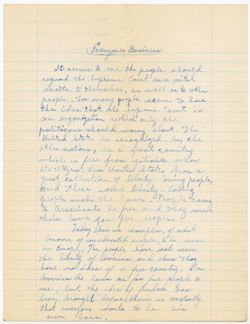 Everyones Business
It seems to me the people should
regard the Supreme Court as a vital
matter to themselves, as well as to other
people. Too many people seem to have
the idea that the Supreme Court is
an organization which only the
politicians should worry about. The
United States is recognized by the
other nations, as a great country
which is free from outside
its citizens. Our United States has a
great collection of liberty-loving people,
and these same liberty-loving
people make the laws. People came
to America to be free and they want
their laws for free people.
Today, there are examples, of what
become of uneducated people, to be seen
in Europe. The people have not known
the liberty of American and since they
have not ideas of a free country. In
America the laws are for the people to
use, but the idea to
been brought before them so
that everyone wants to be his
own boss.